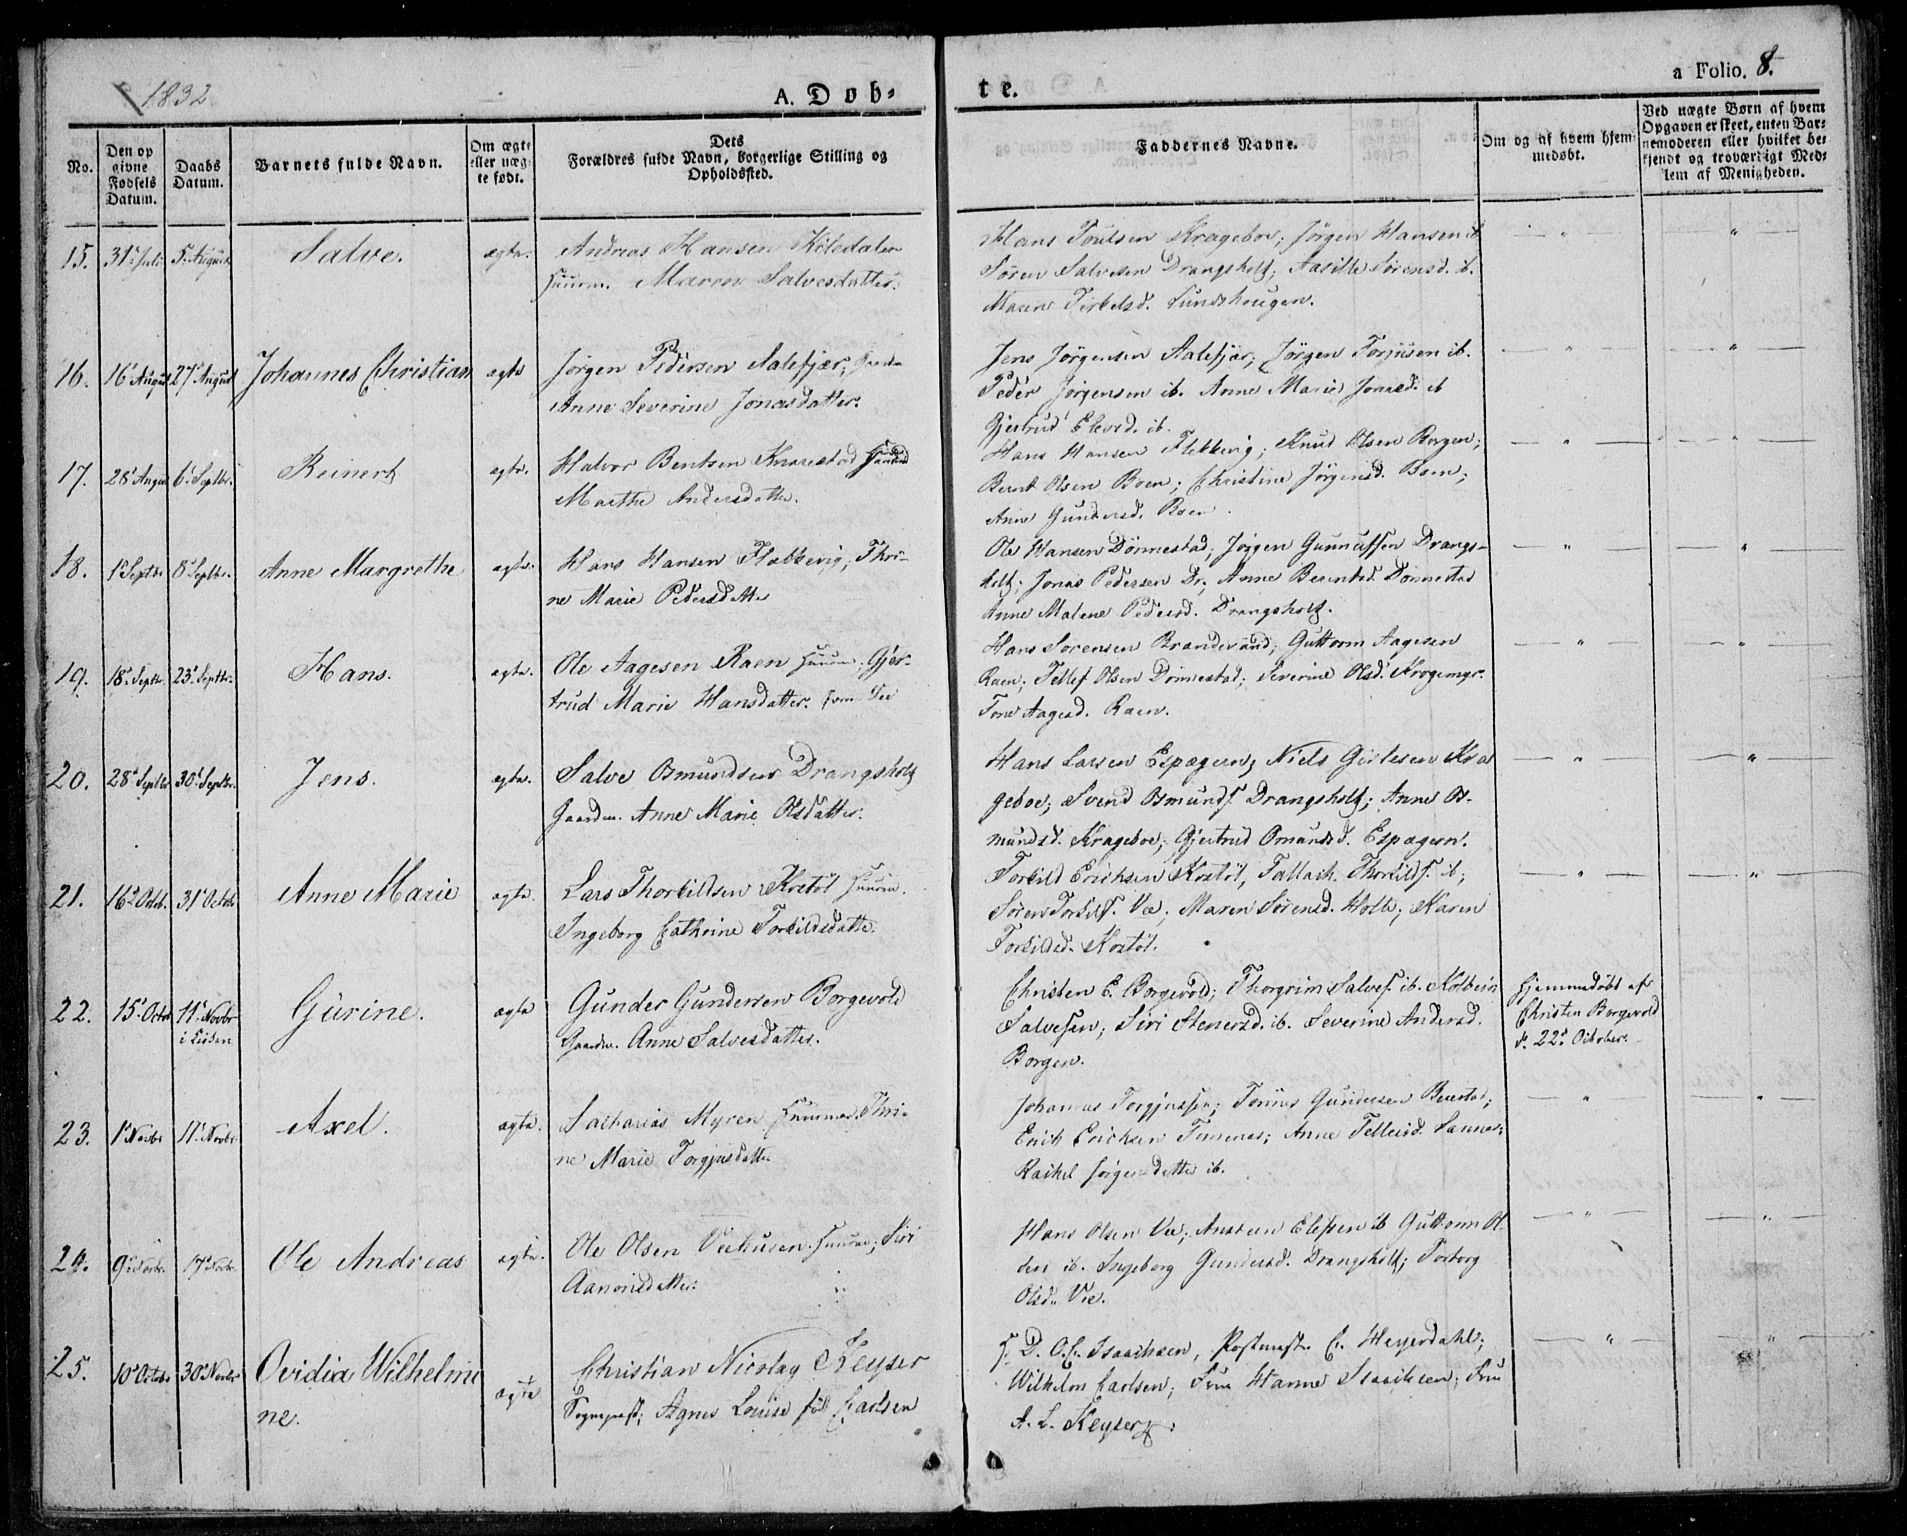 1832
A. Døb-
te.
a Folio. 8.
No.
Den op
givne
Fødsels
Datum.
Daabs
Datum.
Barnets fulde Navn.
Om ægte
eller uæg-
te født.
Dets
Forældres fulde Navn, borgerlige Stilling og
Opholdssted.
Faddernes Navne.
Om og af hvem hjem
medøbt.
Ved uægte Børn af hvem
Opgaven er skeet, enten Bar-
nemoderen eller hvilket be-
kjendt og troværdigt Med-
lem af Menigheden.
15. 31' Juli 5' August Salve. ægte. Andreas Hansen Kiledalen
Huusm. Maren Salvesdatter.
Hans Poulsen Krageboe; Jørgen Hansen ib
Søren Salvesen Drangsholt; Aasille Sørensd. ib.
Maren Terkelsd. Lundshougen.
16. 16' August 27' August Johannes Christian ægte Jørgen Pedersen Aalefjær;
Anne Severine Jonasdatter.
Jens Jørgensen Aalefjær; Jørgen Torjusen ib.
Peder Jørgensen ib. Anne Marie Jonasd. ib
Gjertrud Elevsd. ib.
17. 28' Augus 6' Septbr. Reinert ægte. Halvor Bentsen Knarestad
Marthe Andersdatter.
Hans Hansen Flekkevig; Knud Olsen Borgen;
Bernt Olsen Boen; Christine Jørgensd. Boen;
Anne Gundersd. Boen.
18. 1' Septbr 8' Septbr. Anne Margrethe ægte. Hans Hansen Flekkevig; Thri-
ne Marie Pedersdatter
Ole Hansen Dønnestad; Jørgen Gunnufsen Drangs-
holt; Jonas Pedersen Dr; Anne Berentsd. Dønnestad
Anne Malene Pedersd. Drangsholt.
19. 18' Septbr. 23' Septbr. Hans. ægte. Ole Aagesen Raen Huusm; Gjer-
trud Marie Hansdatter.
Hans Sørensen Brandevand; Guttorm Aagesen
Raen; Tellef Olsen Dønnestad; Severine Olsd. Krogemyr.
Tone Aagesd. Raen.
20. 28' Septbr 30' Septbr. Jens. ægte. Salve Osmundsen Drangsholt
Gaardm. Anne Marie Olsdatter.
Hans Larsen Espægern; Niels Gislesen Kra
geboe; Svend Osmunds. Drangsholt; Anne Os-
mundsd. Krageboe; Gjertrud Omundsd. Espægern.
21. 16' Octb. 31' Octob Anne Marie ægte. Lars Thorkildsen Kostøl Huusm.
Ingeborg Cathrine Torkildsdatter.
Torkild Erichsen Kostøl, Tallach Thorkilds. ib;
Søren Torkilds. Vee; Maren Sørensd. Holte; Karen
Torkildsd. Kostøl.
22. 15' Octob 11' Novbr
i Kirken Gurine. ægte Gunder Gundersen Borgevold
Gaardm. Anne Salvesdatter.
Christen E. Borgevold; Thorgrim Salves. ib. Kolbein
Salvesen; Siri Stenersd. ib. Severine Andersd.
Borgen.
Hjemmedøbt af
Christen Borgevold
d. 22' October.
23. 1' Novbr 11' Novbr Axel. ægte. Zacharias Myren Huusmd. Thri-
ne Marie Torgjusdatter
Johannes Torgjussen; Tønnes Gundersen Beiestad;
Erich Erichsen Timenes; Anne Tellefsd. Sannes;
Rachel Jørgensdatter ib.
24. 9' Novbr. 17' Novbr. Ole Andreas ægte. Ole Olsen Veehusen Huusm; Siri
Aanonsdatter.
Hans Olsen Vee; Ansteen Elefsen ib Guttorm Ol
sen ib. Ingeborg Gundersd. Drangsholt; Torborg
Olsd. Vee.
25. 10' Octob 30' Novbr Ovidia Wilhelmi
ne. ægte Christian Nicolay Keyser
Sognepræst; Agnes Louise født Carlsen
H. D. O. C. Isaachsen, Postmest. C. Heyerdahl;
Wilhelm Carlsen; Frue Hanne Isaachsen; Frue
A. L. Keyser.